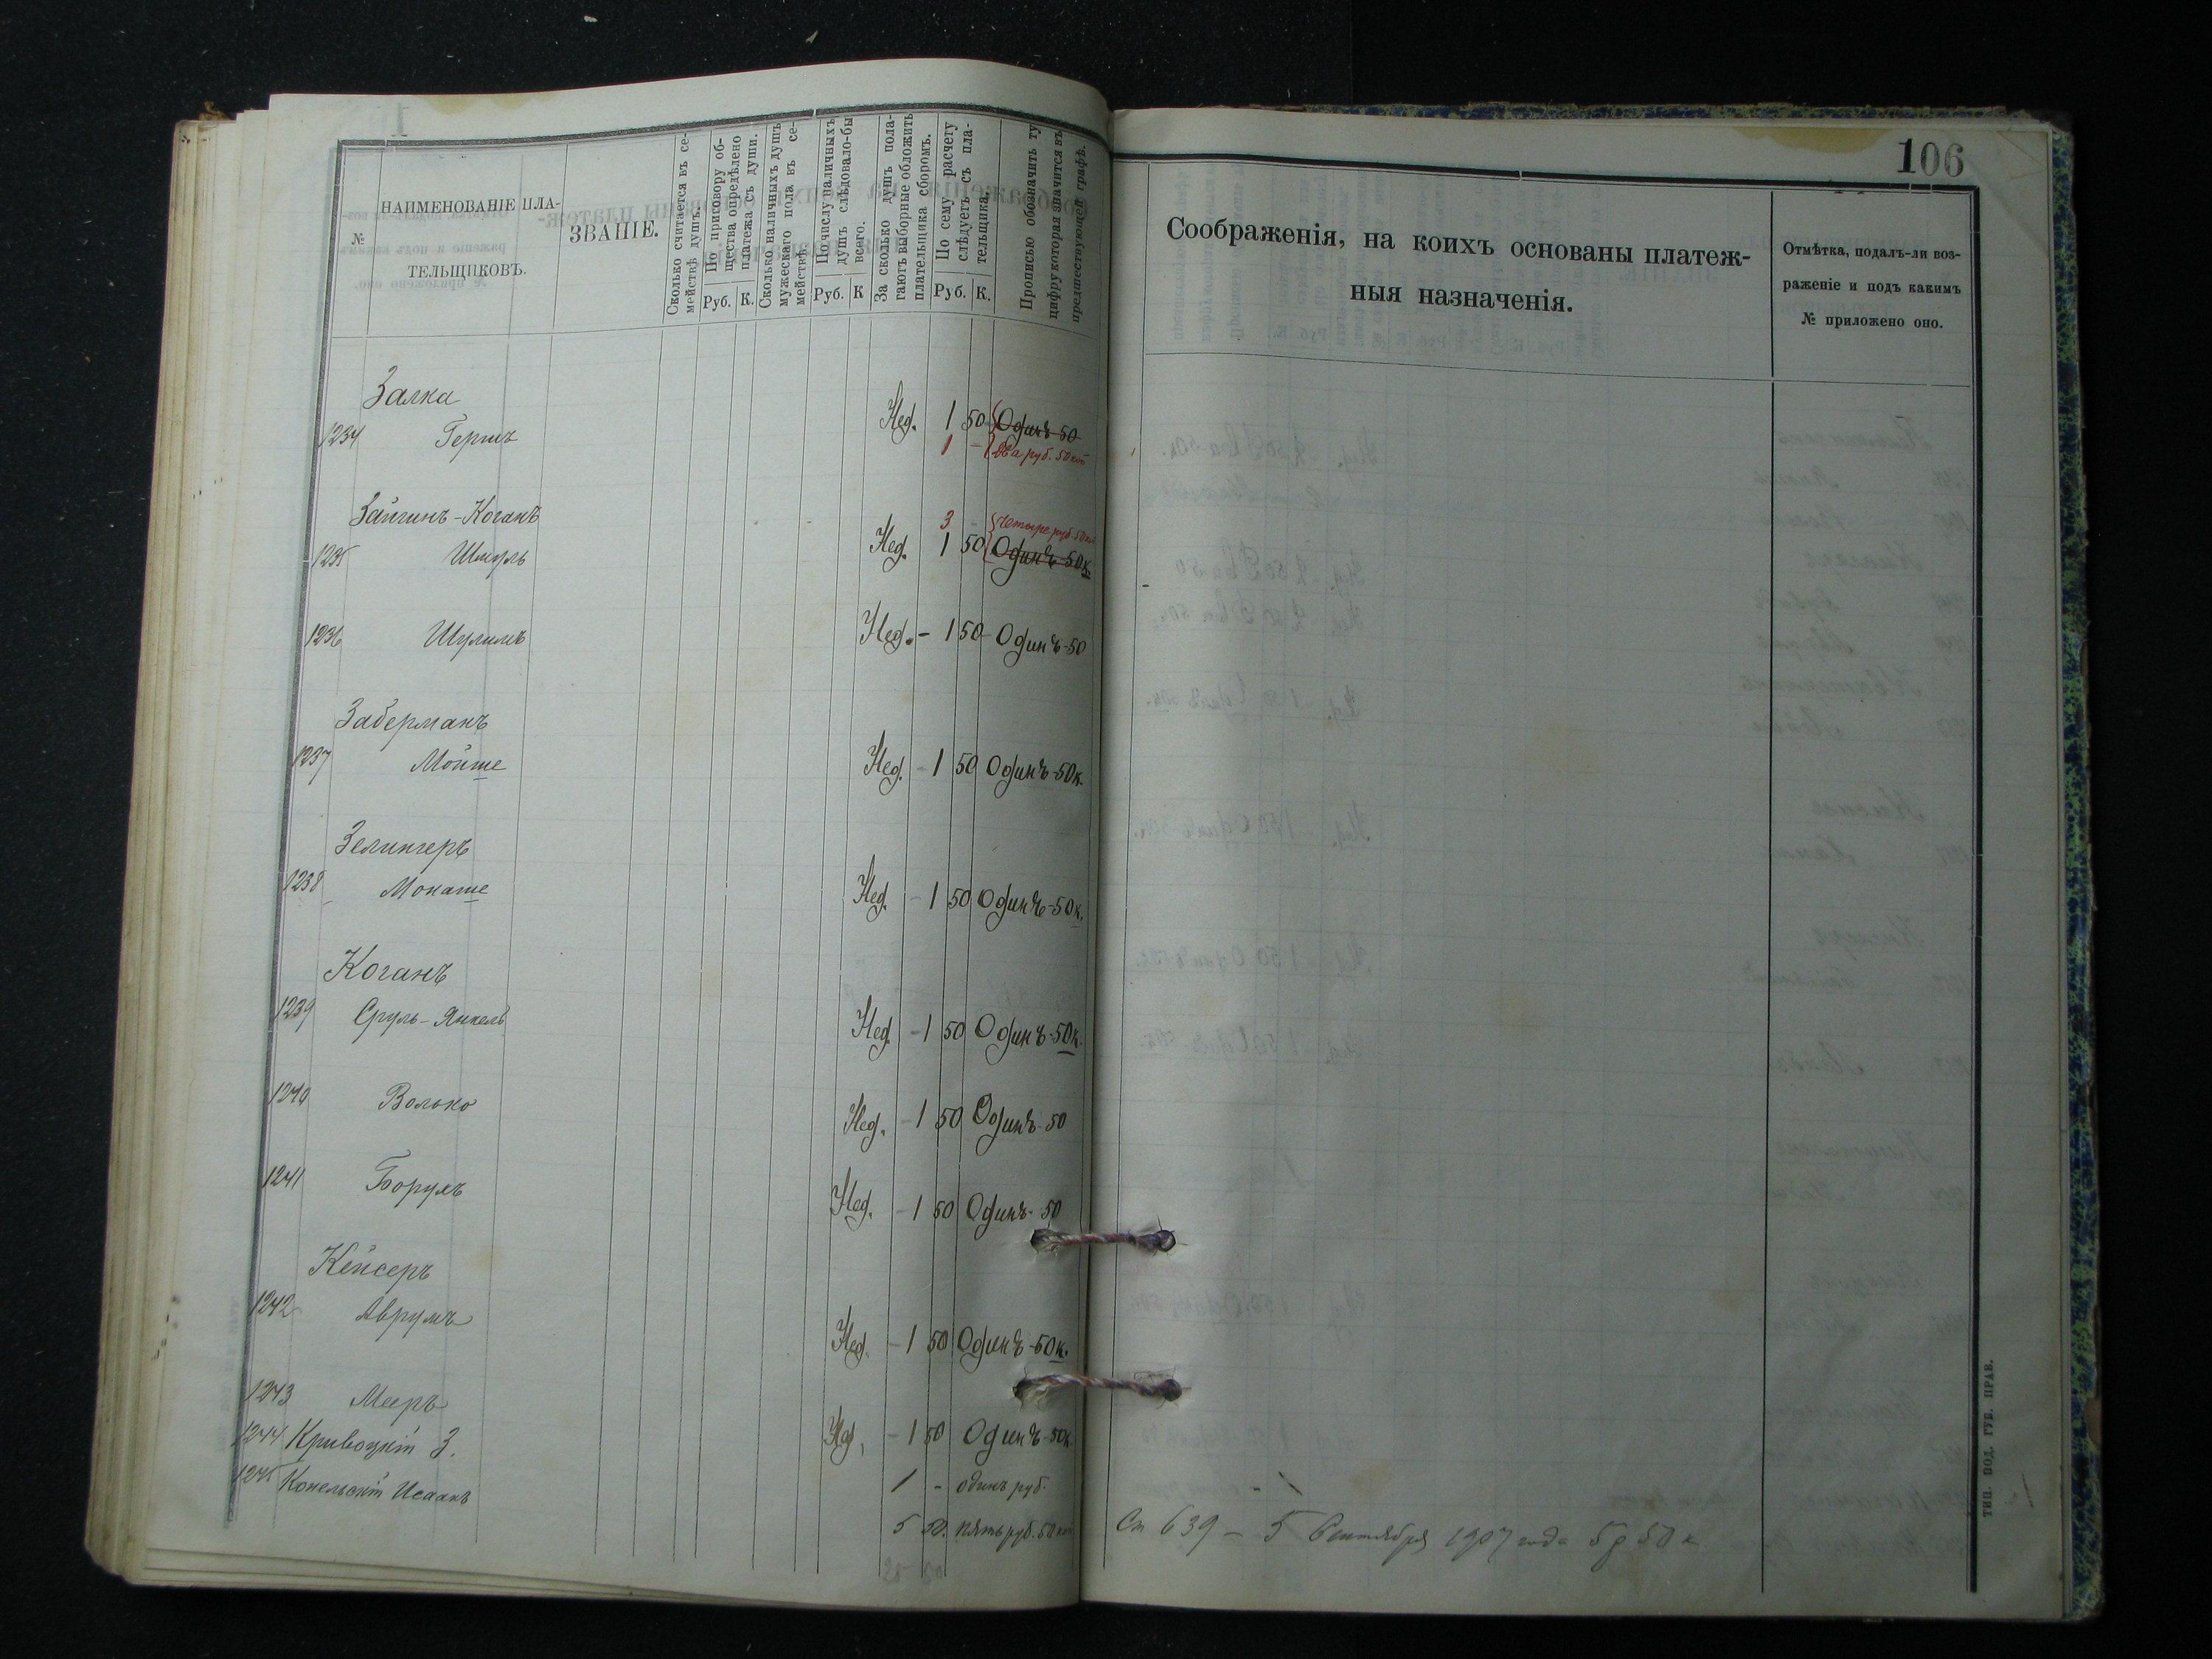 106
№
НАИМЕНОВАНІЕ ПЛА-
ТЕЛЬЩИКОВЪ.
ЗВАНІЕ.
Сколько считается въ се-
мействѣ душъ.
По приговору об-
щества опредѣлено
платежа съ души.
Руб. К.
Сколько наличныхъ душъ
мужескаго пола въ се-
мействѣ
По числу наличныхъ
душъ слѣдовало-бы
всего.
Руб. К
За сколько душъ пола-
гаютъ выборные обложить
плательщика сборомъ.
По сему расчету
слѣдуетъ съ пла-
тельщика.
Руб. К.
Прописью обозначить ту
цифру которая значится въ
предшествующей графѣ.
Соображенія, на коихъ основаны платеж-
ныя назначенія.
Отмѣтка, подалъ-ли воз-
раженіе и подъ какимъ
№ приложено оно.
Залка
1234 Гершъ Нед. 1 50 Одинъ 50
1 - Два руб. 50 коп
Зайгинъ-Коганъ
3 - Четыре руб. 50 коп
1235 Шмуль Нед. 1 50 Одинъ-50к.
1236 Шулимъ Нед. - 1 50 Одинъ-50
Заберманъ
1237 Мойше Нед. - 1 50 Одинъ-50к.
Зелингеръ
1238 Монаше Нед. - 1 50 Одинъ-50к.
Коганъ
1239 Сруль-Янкель Нед. - 1 50 Одинъ-50к.
1240 Волько Нед. - 1 50 Одинъ-50
1241 Борухъ Нед. - 1 50 Одинъ-50
Кейсеръ
1242 Аврумъ Нед. - 1 50 Одинъ-50к.
1243 Мееръ Нед. - 1 50 Одинъ-50к.
1244 З. 1 - одинъ руб.
1245 Конельскій Исаакъ 5 50. пять руб. 50 коп
25 50
Ст 639 - 5 Сентября 1907 года 5 р 50 к
ТИП. ПОД. ГУБ. ПРАВ.